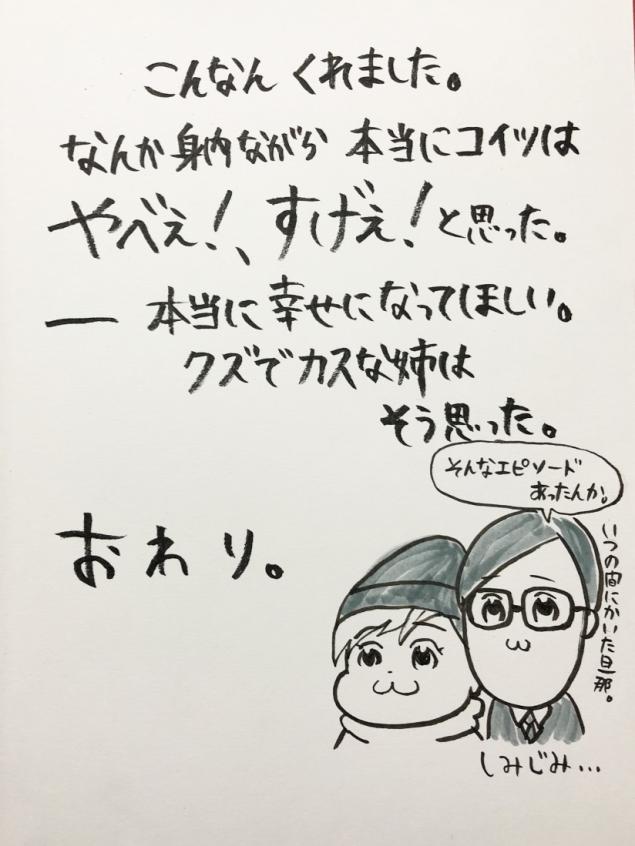 こんなん くれました。
なんか 身内ながら 本当にコイツは
やべぇ!、すげぇ!と思った。
― 本当に幸せになってほしい。
クズでカスな姉は
そう思った。
そんなエピソード
あったんか。
いつの間にかいた旦那。
おわり。
しみじみ…